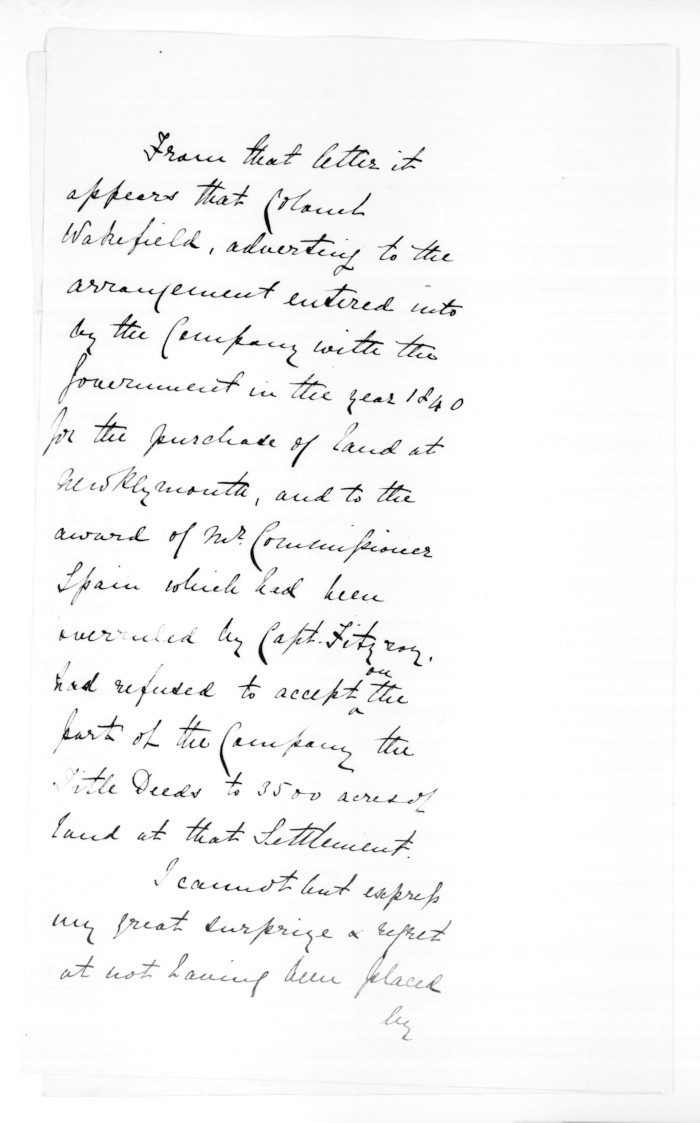 From that letter it
appears that Colonel
Wakefield, adverting to the
arrangement entered into
by the Company with the
Government in the year 1840
for the purchase of land at
New Plymouth, and to the
award of Mr. Commissioner
Spain which had been
overruled by Capt. Fitzroy,
on
had refused to accept ^ the
part of the Company the
Title Deeds to 3500 acres of
land at that Settlement.
I cannot but express
my great surprize & regret
at not having been placed
by